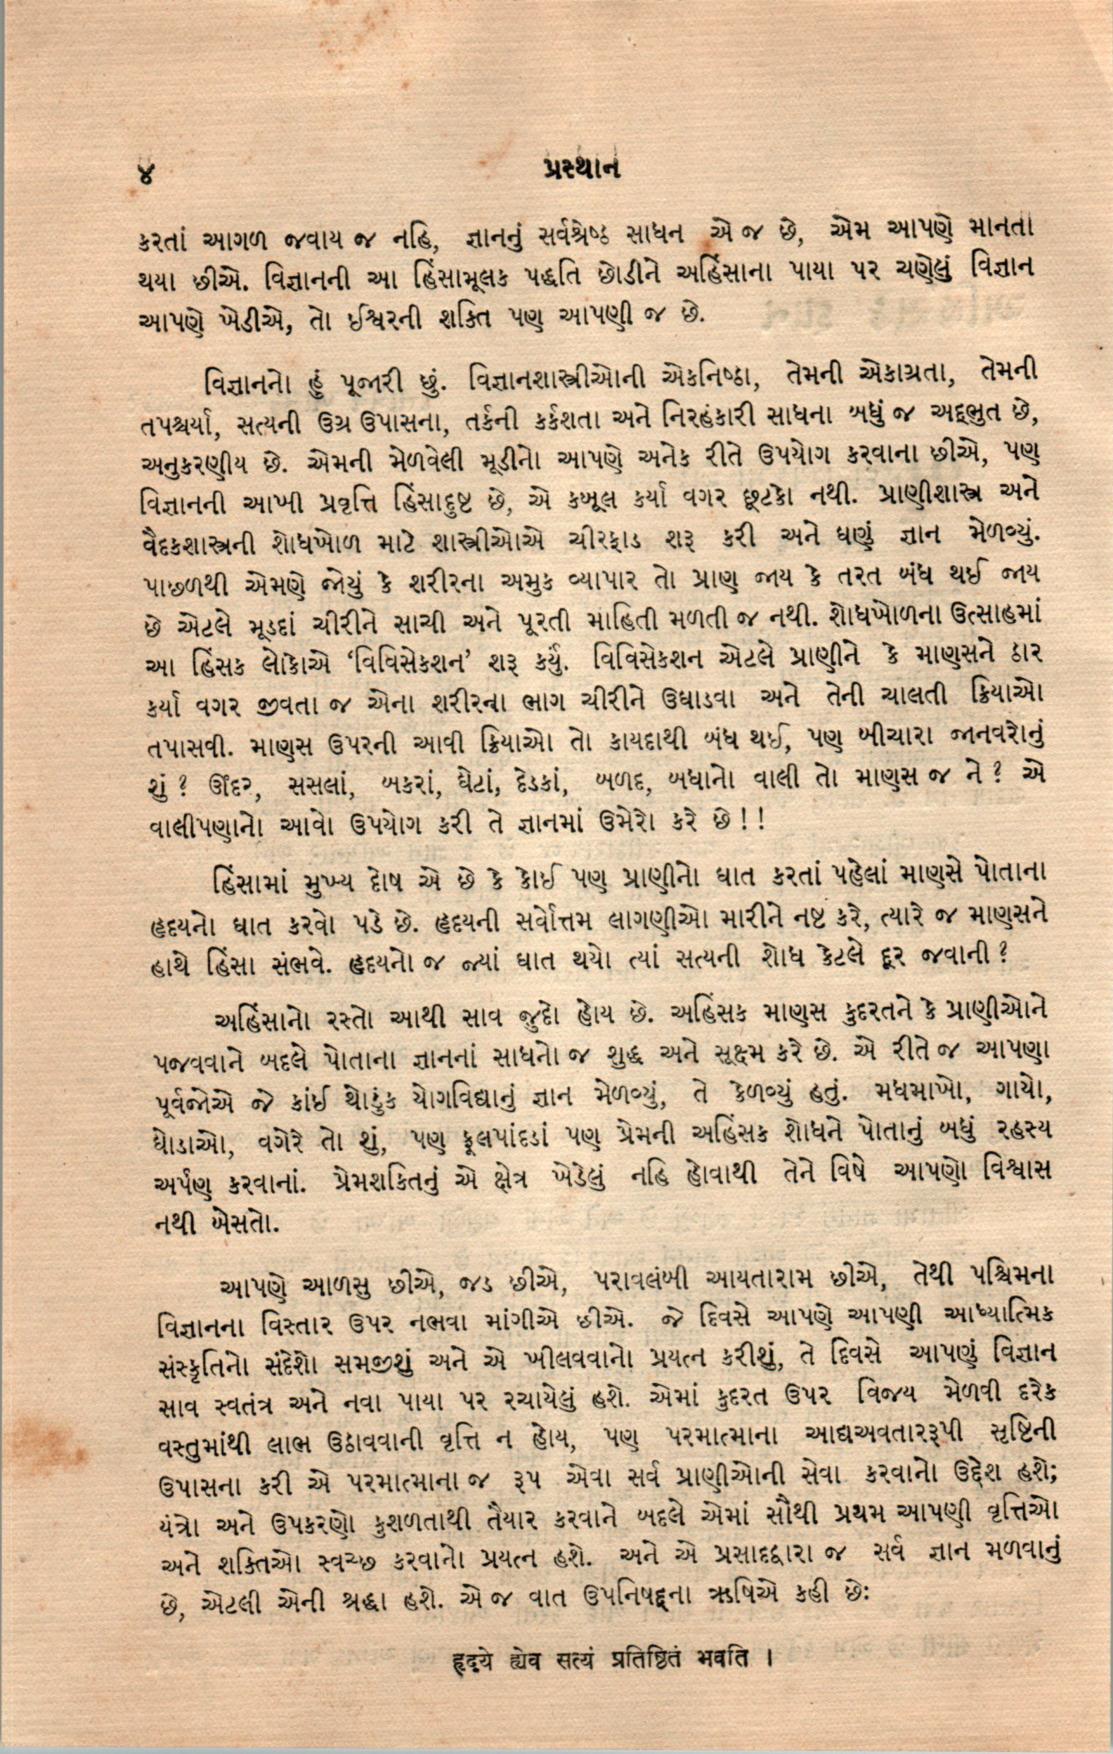 ૪
પ્રસ્થાન
કરતાં આગળ જવાય જ નહિ, જ્ઞાનનું સર્વશ્રેષ્ઠ સાધન એ જ છે, એમ આપણે માનતા
થયા છીએ. વિજ્ઞાનની આ હિંસામૂલક પદ્ધતિ છોડીને અહિંસાના પાયા પર ચણેલું વિજ્ઞાન
આપણે ખેડીએ, તો ઈશ્વરની શક્તિ પણ આપણી જ છે.
વિજ્ઞાનનો હું પૂજારી છું. વિજ્ઞાનશાસ્ત્રીઓની એકનિષ્ઠા, તેમની એકાગ્રતા, તેમની
તપશ્ચર્યા, સત્યની ઉગ્ર ઉપાસના, તર્કની કર્કશતા અને નિરહંકારી સાધના બધું જ અદ્ભુત છે,
અનુકરણીય છે. એમની મેળવેલી મૂડીનો આપણે અનેક રીતે ઉપયોગ કરવાના છીએ, પણ
વિજ્ઞાનની આખી પ્રવૃત્તિ હિંસાદુષ્ટ છે, એ કબૂલ કર્યા વગર છૂટકો નથી. પ્રાણીશાસ્ત્ર અને
વૈદકશાસ્ત્રની શોધખોળ માટે શાસ્ત્રીઓએ ચીરફાડ શરૂ કરી અને ઘણું જ્ઞાન મેળવ્યું.
પાછળથી એમણે જોયું કે શરીરના અમુક વ્યાપાર તો પ્રાણ જાય કે તરત બંધ થઈ જાય
છે એટલે મૂડદાં ચીરીને સાચી અને પૂરતી માહિતી મળતી જ નથી. શોધખોળના ઉત્સાહમાં
આ હિંસક લોકોએ ‘વિવિસેકશન’ શરૂ કર્યું. વિવિસેકશન એટલે પ્રાણીને કે માણસને ઠાર
કર્યા વગર જીવતા જ એના શરીરના ભાગ ચીરીને ઉઘાડવા અને તેની ચાલતી ક્રિયાઓ
તપાસવી. માણસ ઉપરની આવી ક્રિયાઓ તો કાયદાથી બંધ થઈ, પણ બીચારા જાનવરોનું
શું? ઊંદર, સસલાં, બકરાં, ઘેટાં, દેડકાં, બળદ, બધાનો વાલી તો માણસ જ ને? એ
વાલીપણાનો આવો ઉપયોગ કરી તે જ્ઞાનમાં ઉમેરો કરે છે!!
હિંસામાં મુખ્ય દોષ એ છે કે કોઈ પણ પ્રાણીનો ઘાત કરતાં પહેલાં માણસે પોતાના
હૃદયનો ઘાત કરવો પડે છે. હૃદયની સર્વોત્તમ લાગણીઓ મારીને નષ્ટ કરે, ત્યારે જ માણસને
હાથે હિંસા સંભવે. હૃદયનો જ જ્યાં ઘાત થયો ત્યાં સત્યની શોધ કેટલે દૂર જવાની?
અહિંસાનો રસ્તો આથી સાવ જુદો હોય છે. અહિંસક માણસ કુદરતને કે પ્રાણીઓને
પજવવાને બદલે પોતાના જ્ઞાનનાં સાધનો જ શુદ્ધ અને સૂક્ષ્મ કરે છે. એ રીતે જ આપણા
પૂર્વજોએ જે કાંઈ થોડુંક યોગવિદ્યાનું જ્ઞાન મેળવ્યું, તે કેળવ્યું હતું. મધમાખો, ગાયો,
ઘોડાઓ, વગેરે તો શું, પણ ફૂલપાંદડાં પણ પ્રેમની અહિંસક શોધને પોતાનું બધું રહસ્ય
અર્પણ કરવાનાં. પ્રેમશક્તિનું એ ક્ષેત્ર ખેડેલું નહિ હોવાથી તેને વિષે આપણો વિશ્વાસ
નથી બેસતો.
આપણે આળસુ છીએ, જડ છીએ, પરાવલંબી આયતારામ છીએ, તેથી પશ્ચિમના
વિજ્ઞાનના વિસ્તાર ઉપર નભવા માંગીએ છીએ. જે દિવસે આપણે આપણી આધ્યાત્મિક
સંસ્કૃતિનો સંદેશો સમજીશું અને એ ખીલવવાનો પ્રયત્ન કરીશું, તે દિવસે આપણું વિજ્ઞાન
સાવ સ્વતંત્ર અને નવા પાયા પર રચાયેલું હશે. એમાં કુદરત ઉપર વિજય મેળવી દરેક
વસ્તુમાંથી લાભ ઉઠાવવાની વૃત્તિ ન હોય, પણ પરમાત્માના આદ્યઅવતારરૂપી સૃષ્ટિની
ઉપાસના કરી એ પરમાત્માના જ રૂપ એવા સર્વ પ્રાણીઓની સેવા કરવાનો ઉદ્દેશ હશે;
યંત્રો અને ઉપકરણો કુશળતાથી તૈયાર કરવાને બદલે એમાં સૌથી પ્રથમ આપણી વૃત્તિઓ
અને શક્તિઓ સ્વચ્છ કરવાનો પ્રયત્ન હશે. અને એ પ્રસાદદ્વારા જ સર્વ જ્ઞાન મળવાનું
છે, એટલી એની શ્રદ્ધા હશે. એ જ વાત ઉપનિષદ્ના ઋષિએ કહી છે:
हृदये ह्येव सत्यं प्रतिष्ठितं भवति ।